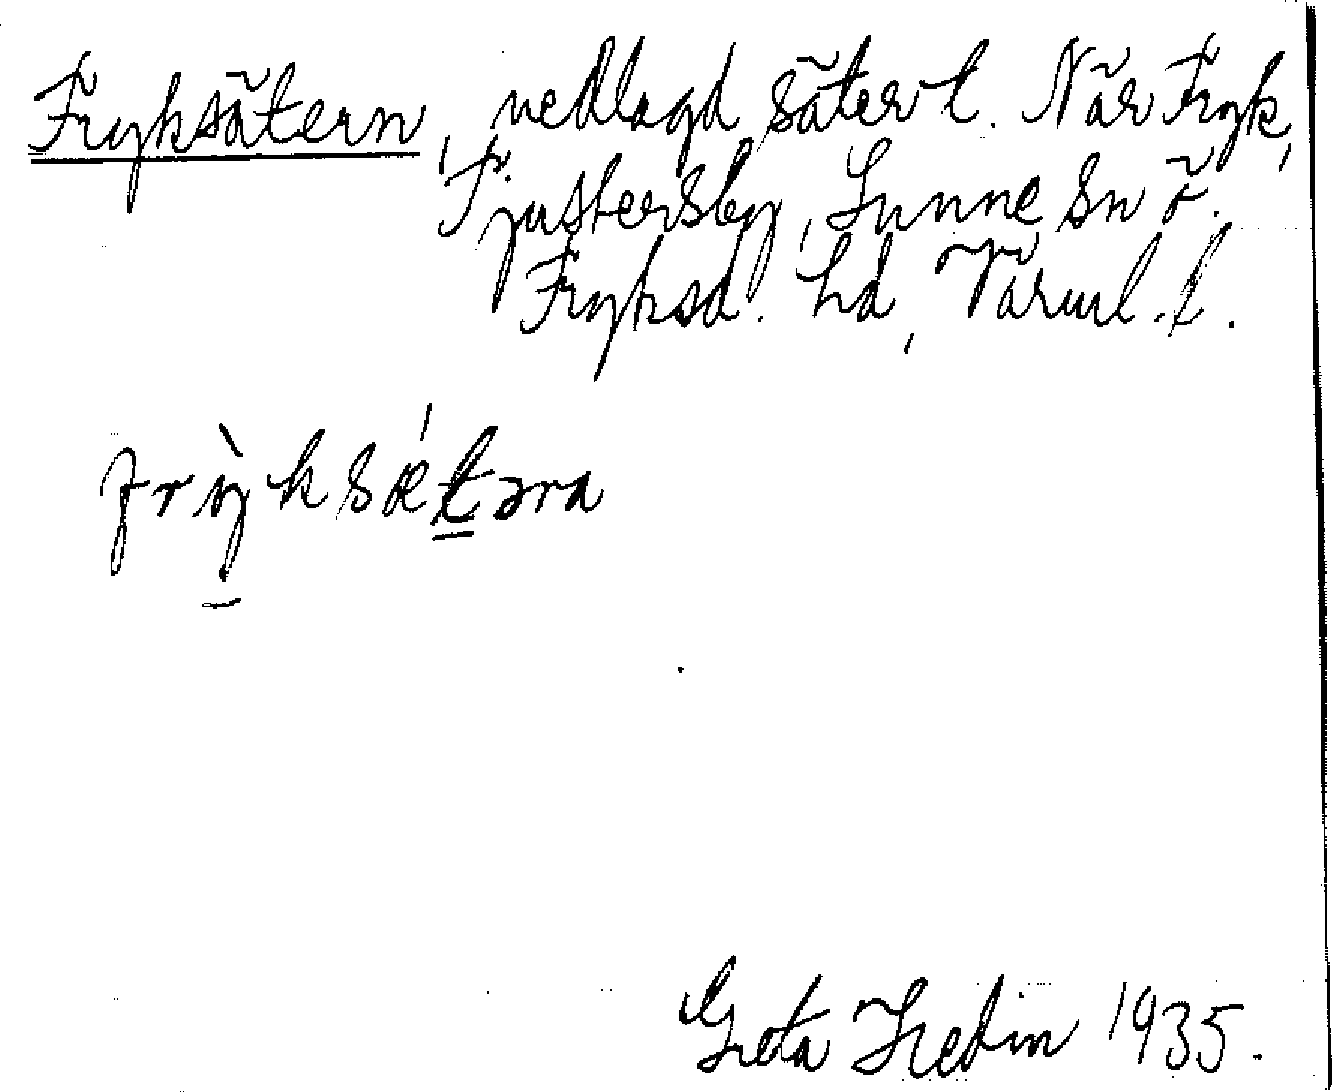 Fryksätern, nedlagd säter t. När Fryk,
Tjustersby, Sunne sn ö.
Fryksd. hd, Värml. l.
frỳksǽtəra
Greta Hedin 1935.